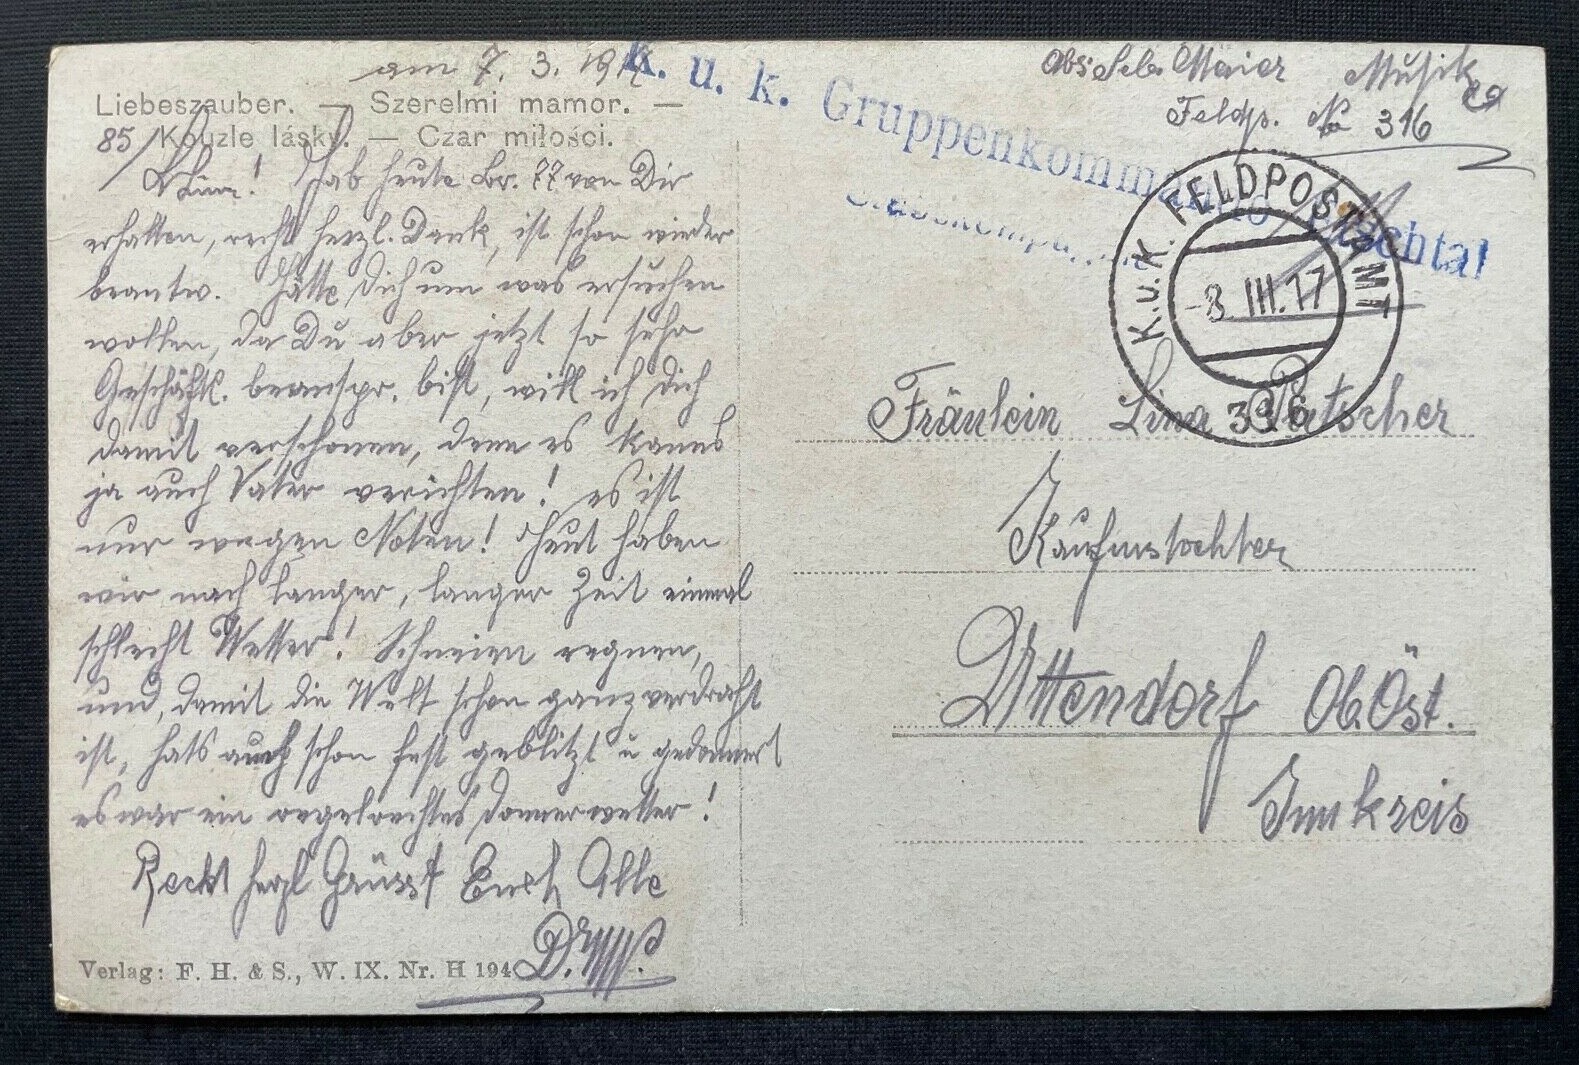 am 7. 3. 1917
Liebeszauber. — Szerelmi mamor. —
85/ Kouzle lásky. — Czar miłości.
Hab heute Br. 77 von Dir
erhalten, recht herzl. Dank, ist schon wieder
beantw. Hätte Dich um was ersuchen
wollen, da Du aber jetzt so sehr
Geschäftl. beanspr. bist, will ich Dich
damit verschonen, denn es kanns
ja auch Vater verichten! es ist
nur wegen Noten! Heut haben
wir nach langer, langer Zeit einmal
schlecht Wetter! Schneien regnen,
und, damit die Welt schon ganz verdraht
ist, hats auch schon fest geblitzt u gedonnert
es war ein regelrechtes Donnerwetter!
Recht herzl Grüsst Euch Alle
Verlag: F. H. & S., W. IX. Nr. H 194
K. u. k. Gruppenkommando Etschtal
Abs: Seb. Maier Musik
Feldp. No 316
K. u. K. FELDPOSTAMT
-8. III. 17
316
Fräulein Lina Patscher
Kaufmstochter
Uttendorf Ob. Öst.
Innkreis